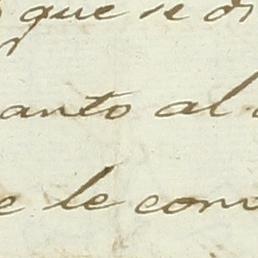 que se di
anto al
e le conv